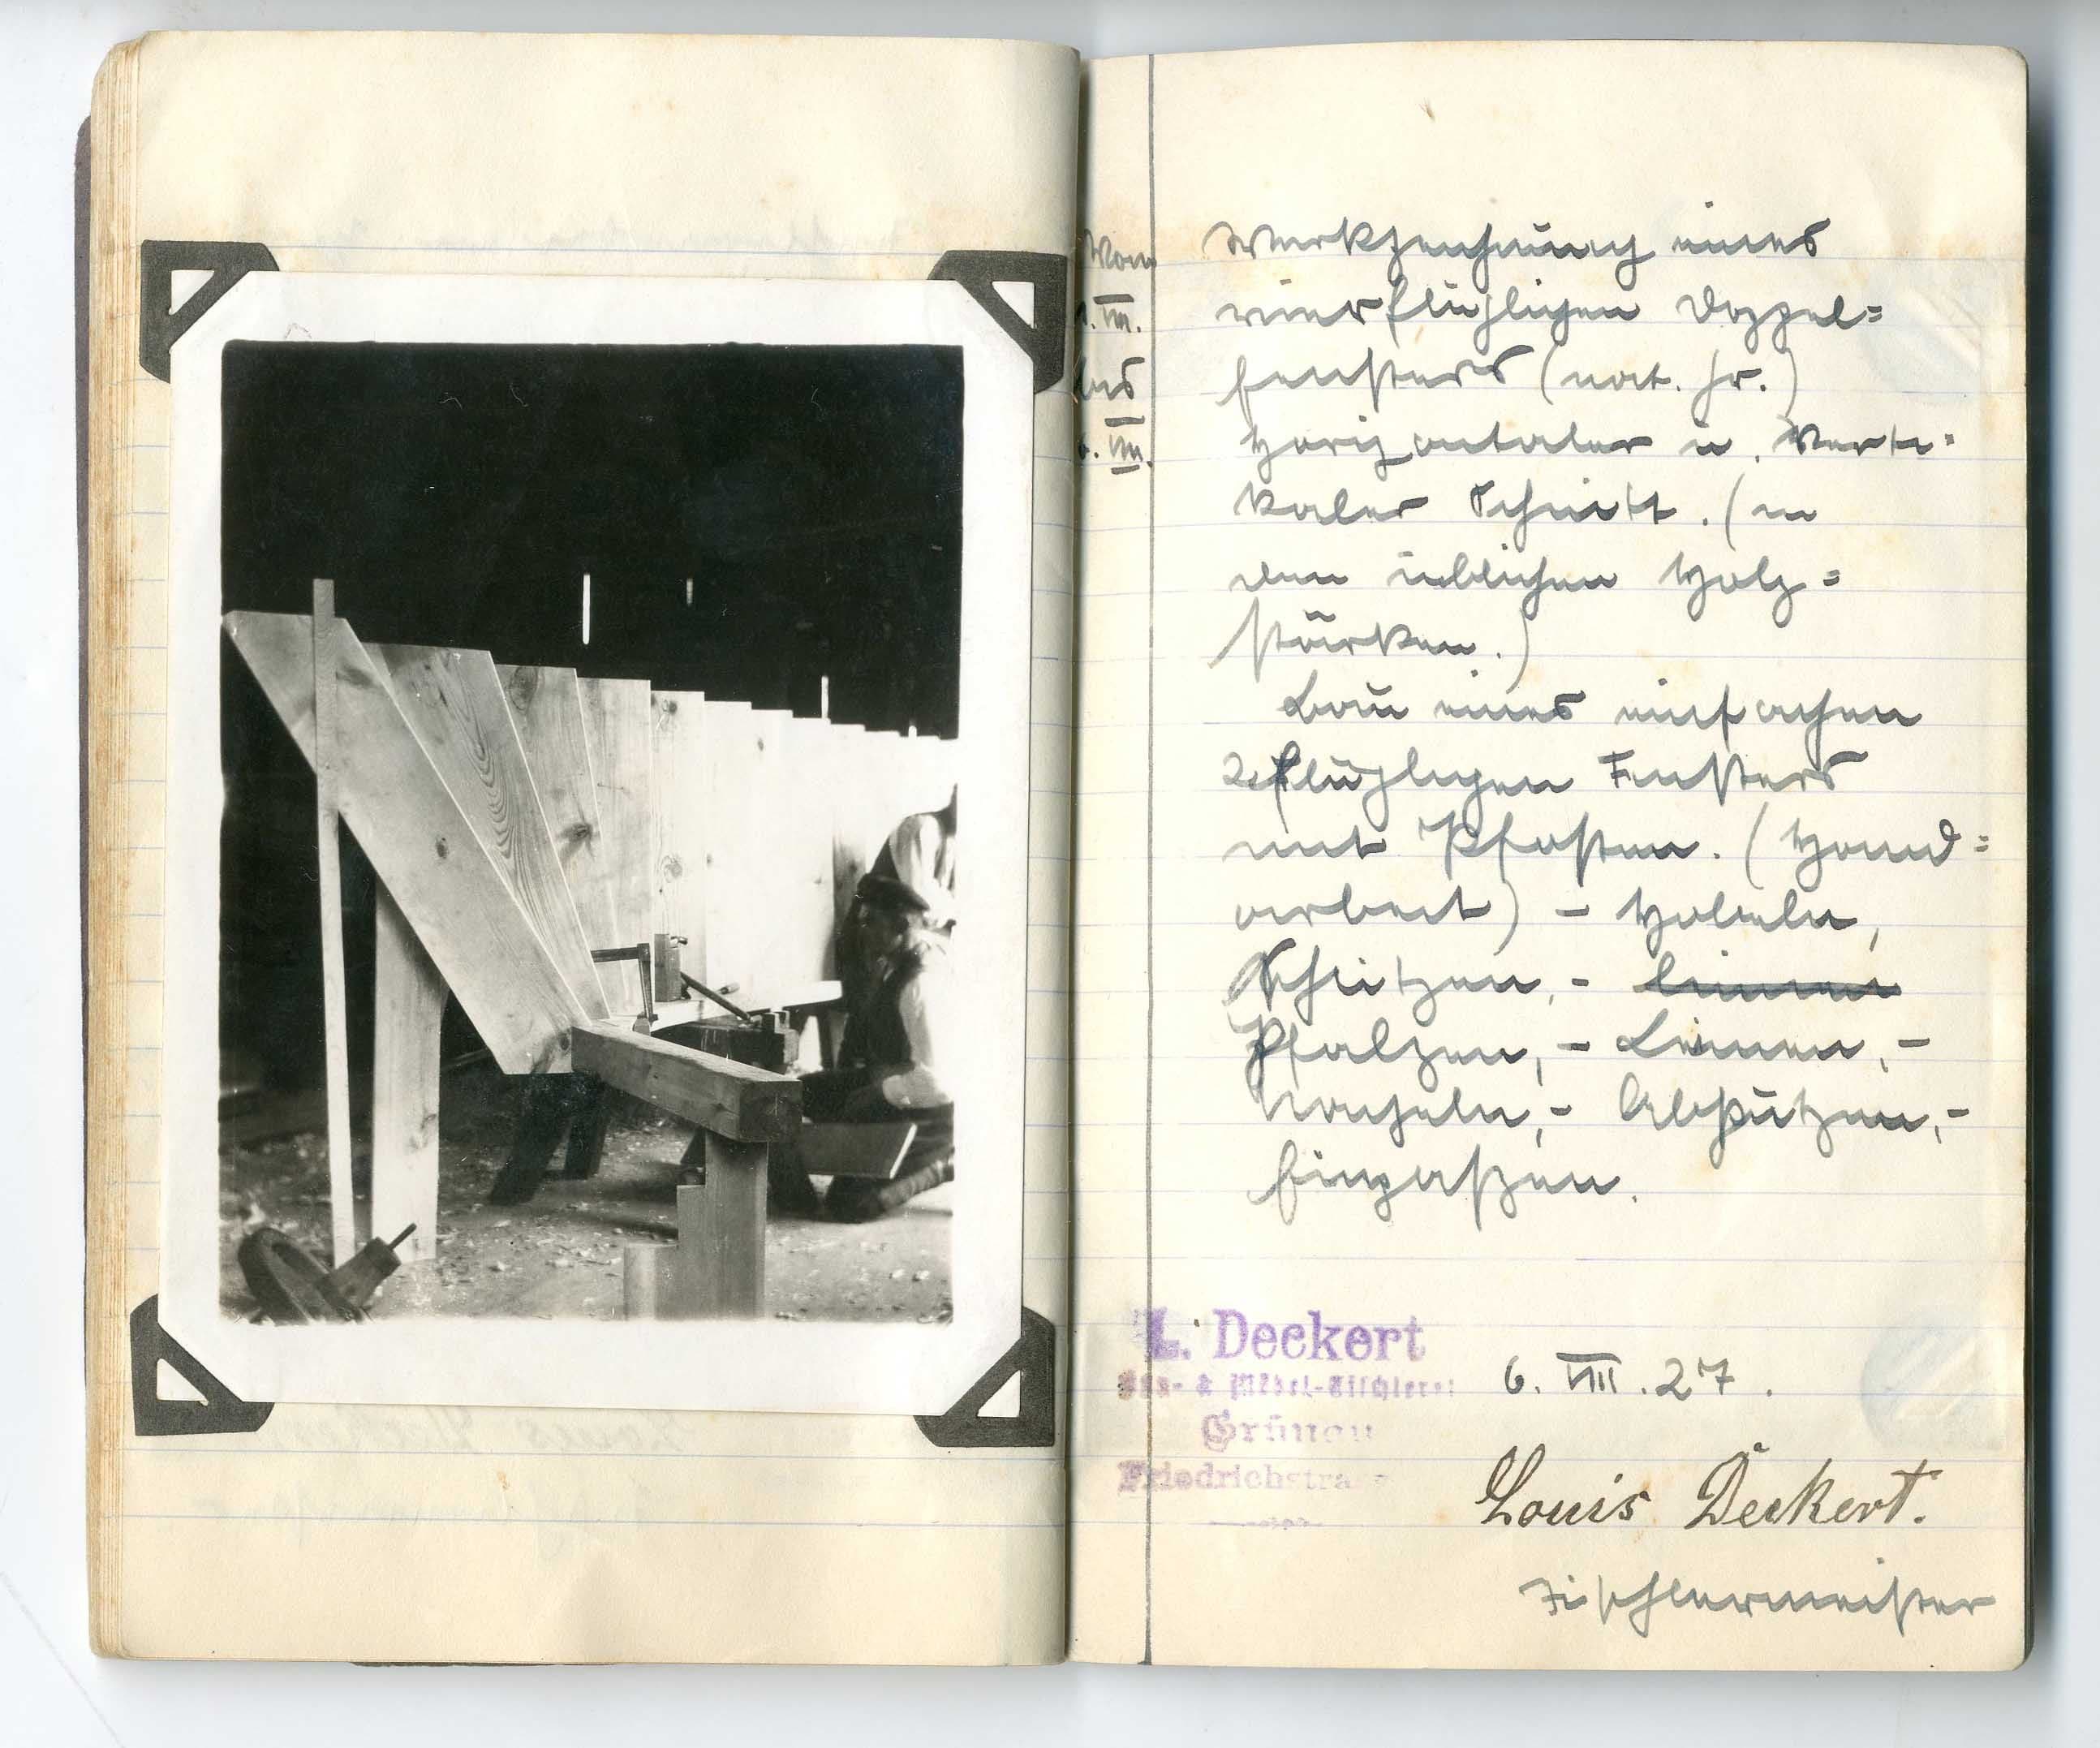 Von
. VIII.
bis
6. VIII.
Werkzeichnung eines
vierflügligen Doppel=
fensters (nat. Gr.)
Horizontaler u. Verti=
kaler Schnitt. (in
den üblichen Holz=
stärken.)
Bau eines einfachen
2flügligen Fensters
mit Pfosten. (Hand=
arbeit) - Hobeln,
Schlitzen, - leimen
Pfalzen, - Leimen, -
Nageln, - Abputzen, -
Einpassen.
L. Deckert
Bau- & Möbel-Tischlerei
Grünau
Friedrichstra
6. VIII. 27.
Louis Deckert.
Tischlermeister